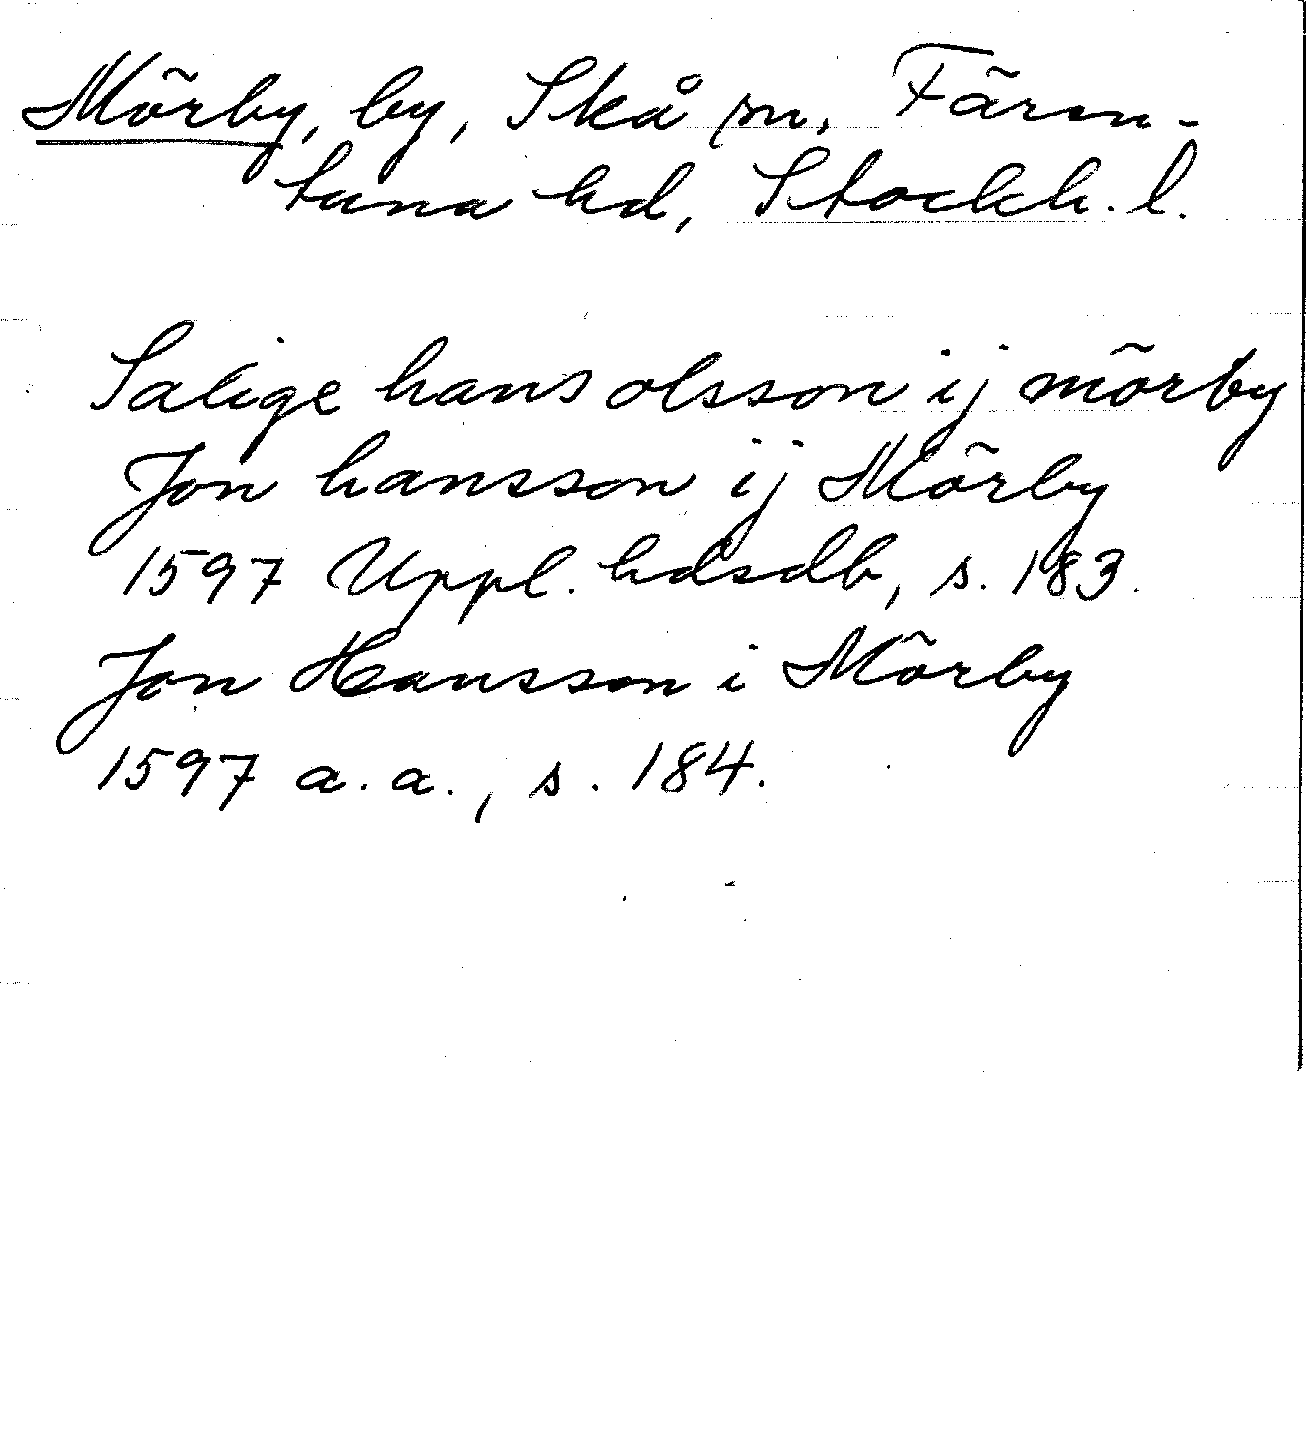 Mörby, by, Skå sn, Fären-
tuna hd, Stockh. l.
Salige hans olsson ij mörby
Jon hansson ij Mörby
1597 Uppl. hdsdb, s. 183.
Jon Hansson i Mörby
1597 a. a., s. 184.